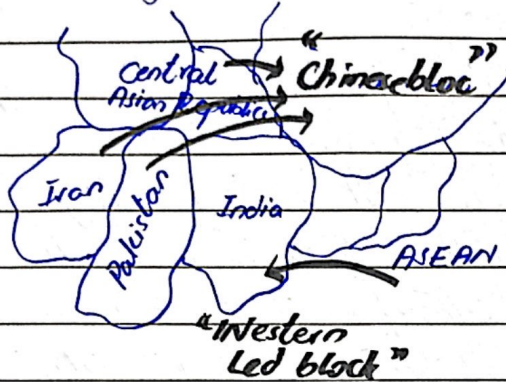 Central
Asian Republics
"Chinese bloc"
Iran
Pakistan
India
ASEAN
"Western
Led block"